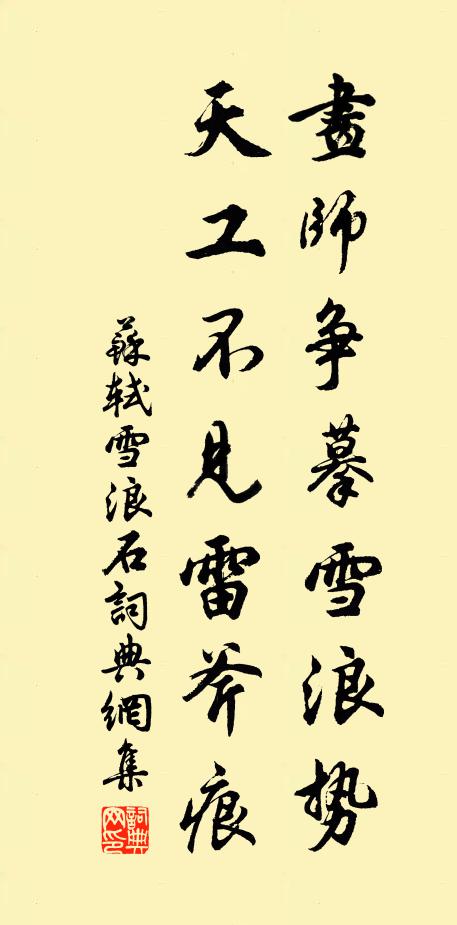 畫師争摹雪浪勢
天工不見雷斧痕
蘇軾雪浪石詞典網集
詞典网印